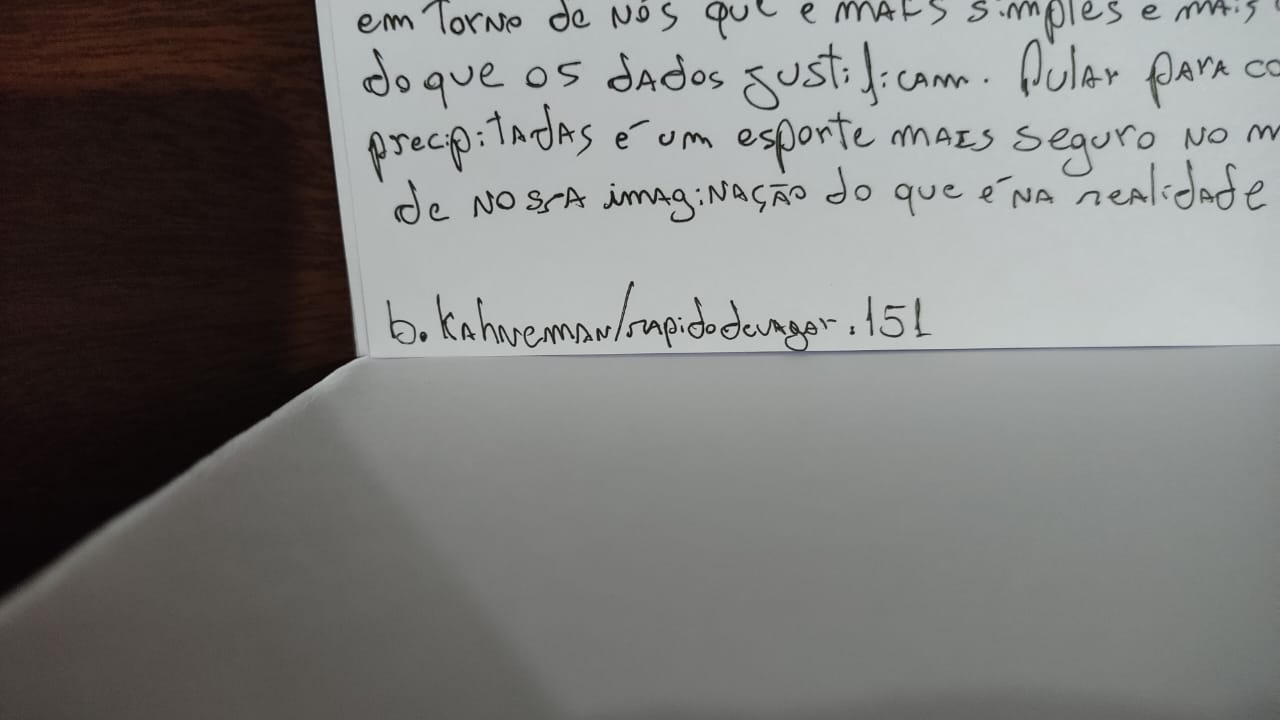 em Torno de nós que é mais simples e mais
do que os dados justificam. Pular para co
precipitadas é um esporte mais seguro no m
de nossa imaginação do que é na realidade
b. Kahneman/rapidodevagar.151